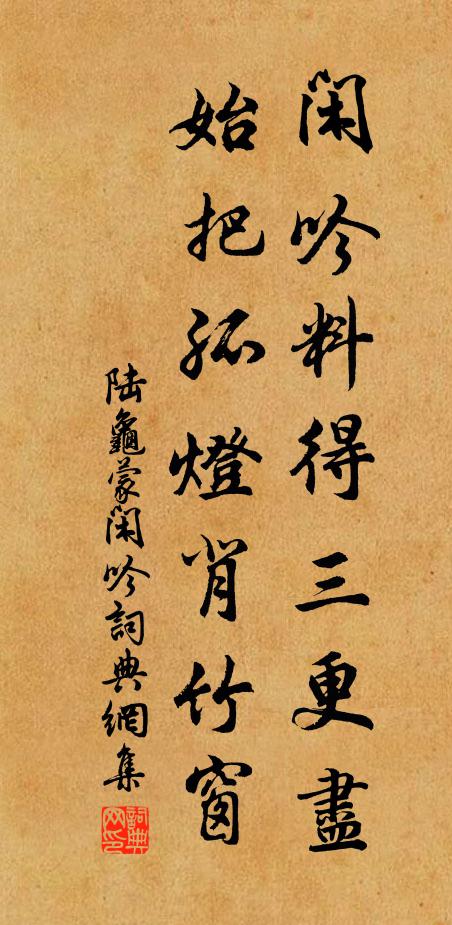 閑吟料得三更盡
始把孤燈背竹窗
陸龜蒙閑吟詞典網集
詞典网印